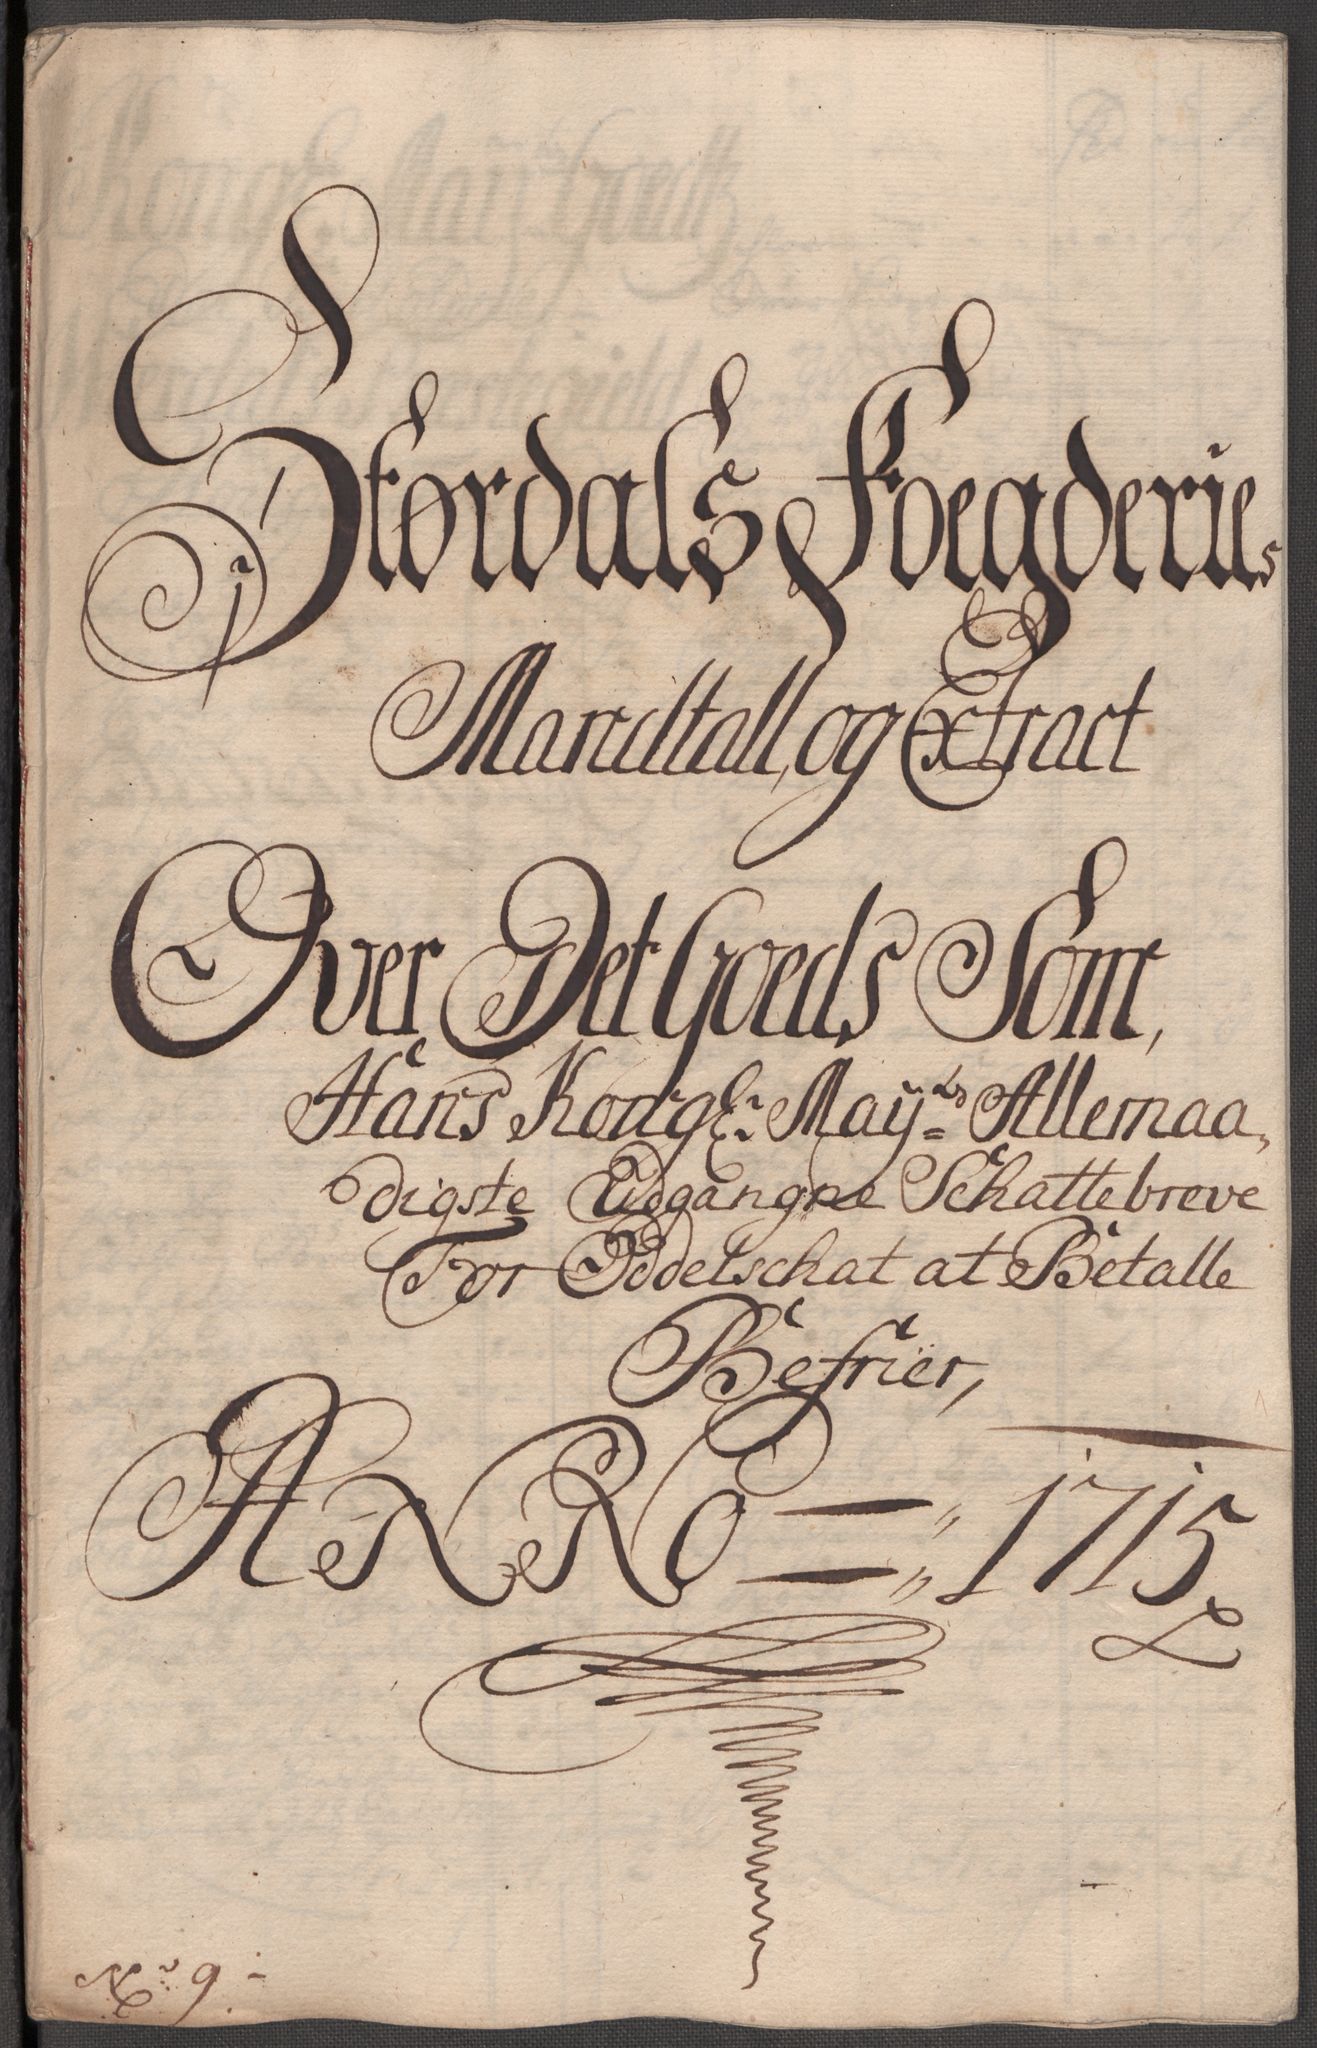 Størdals Foegderies
Mandtall, og Extract
Over Det Goeds Som,
Hans Kongl: May:ts Allernaa,
digste Udgangne Schattebreve
For Oddelschat at Betalle
Befrier,
ANNO = 1715
No: 9